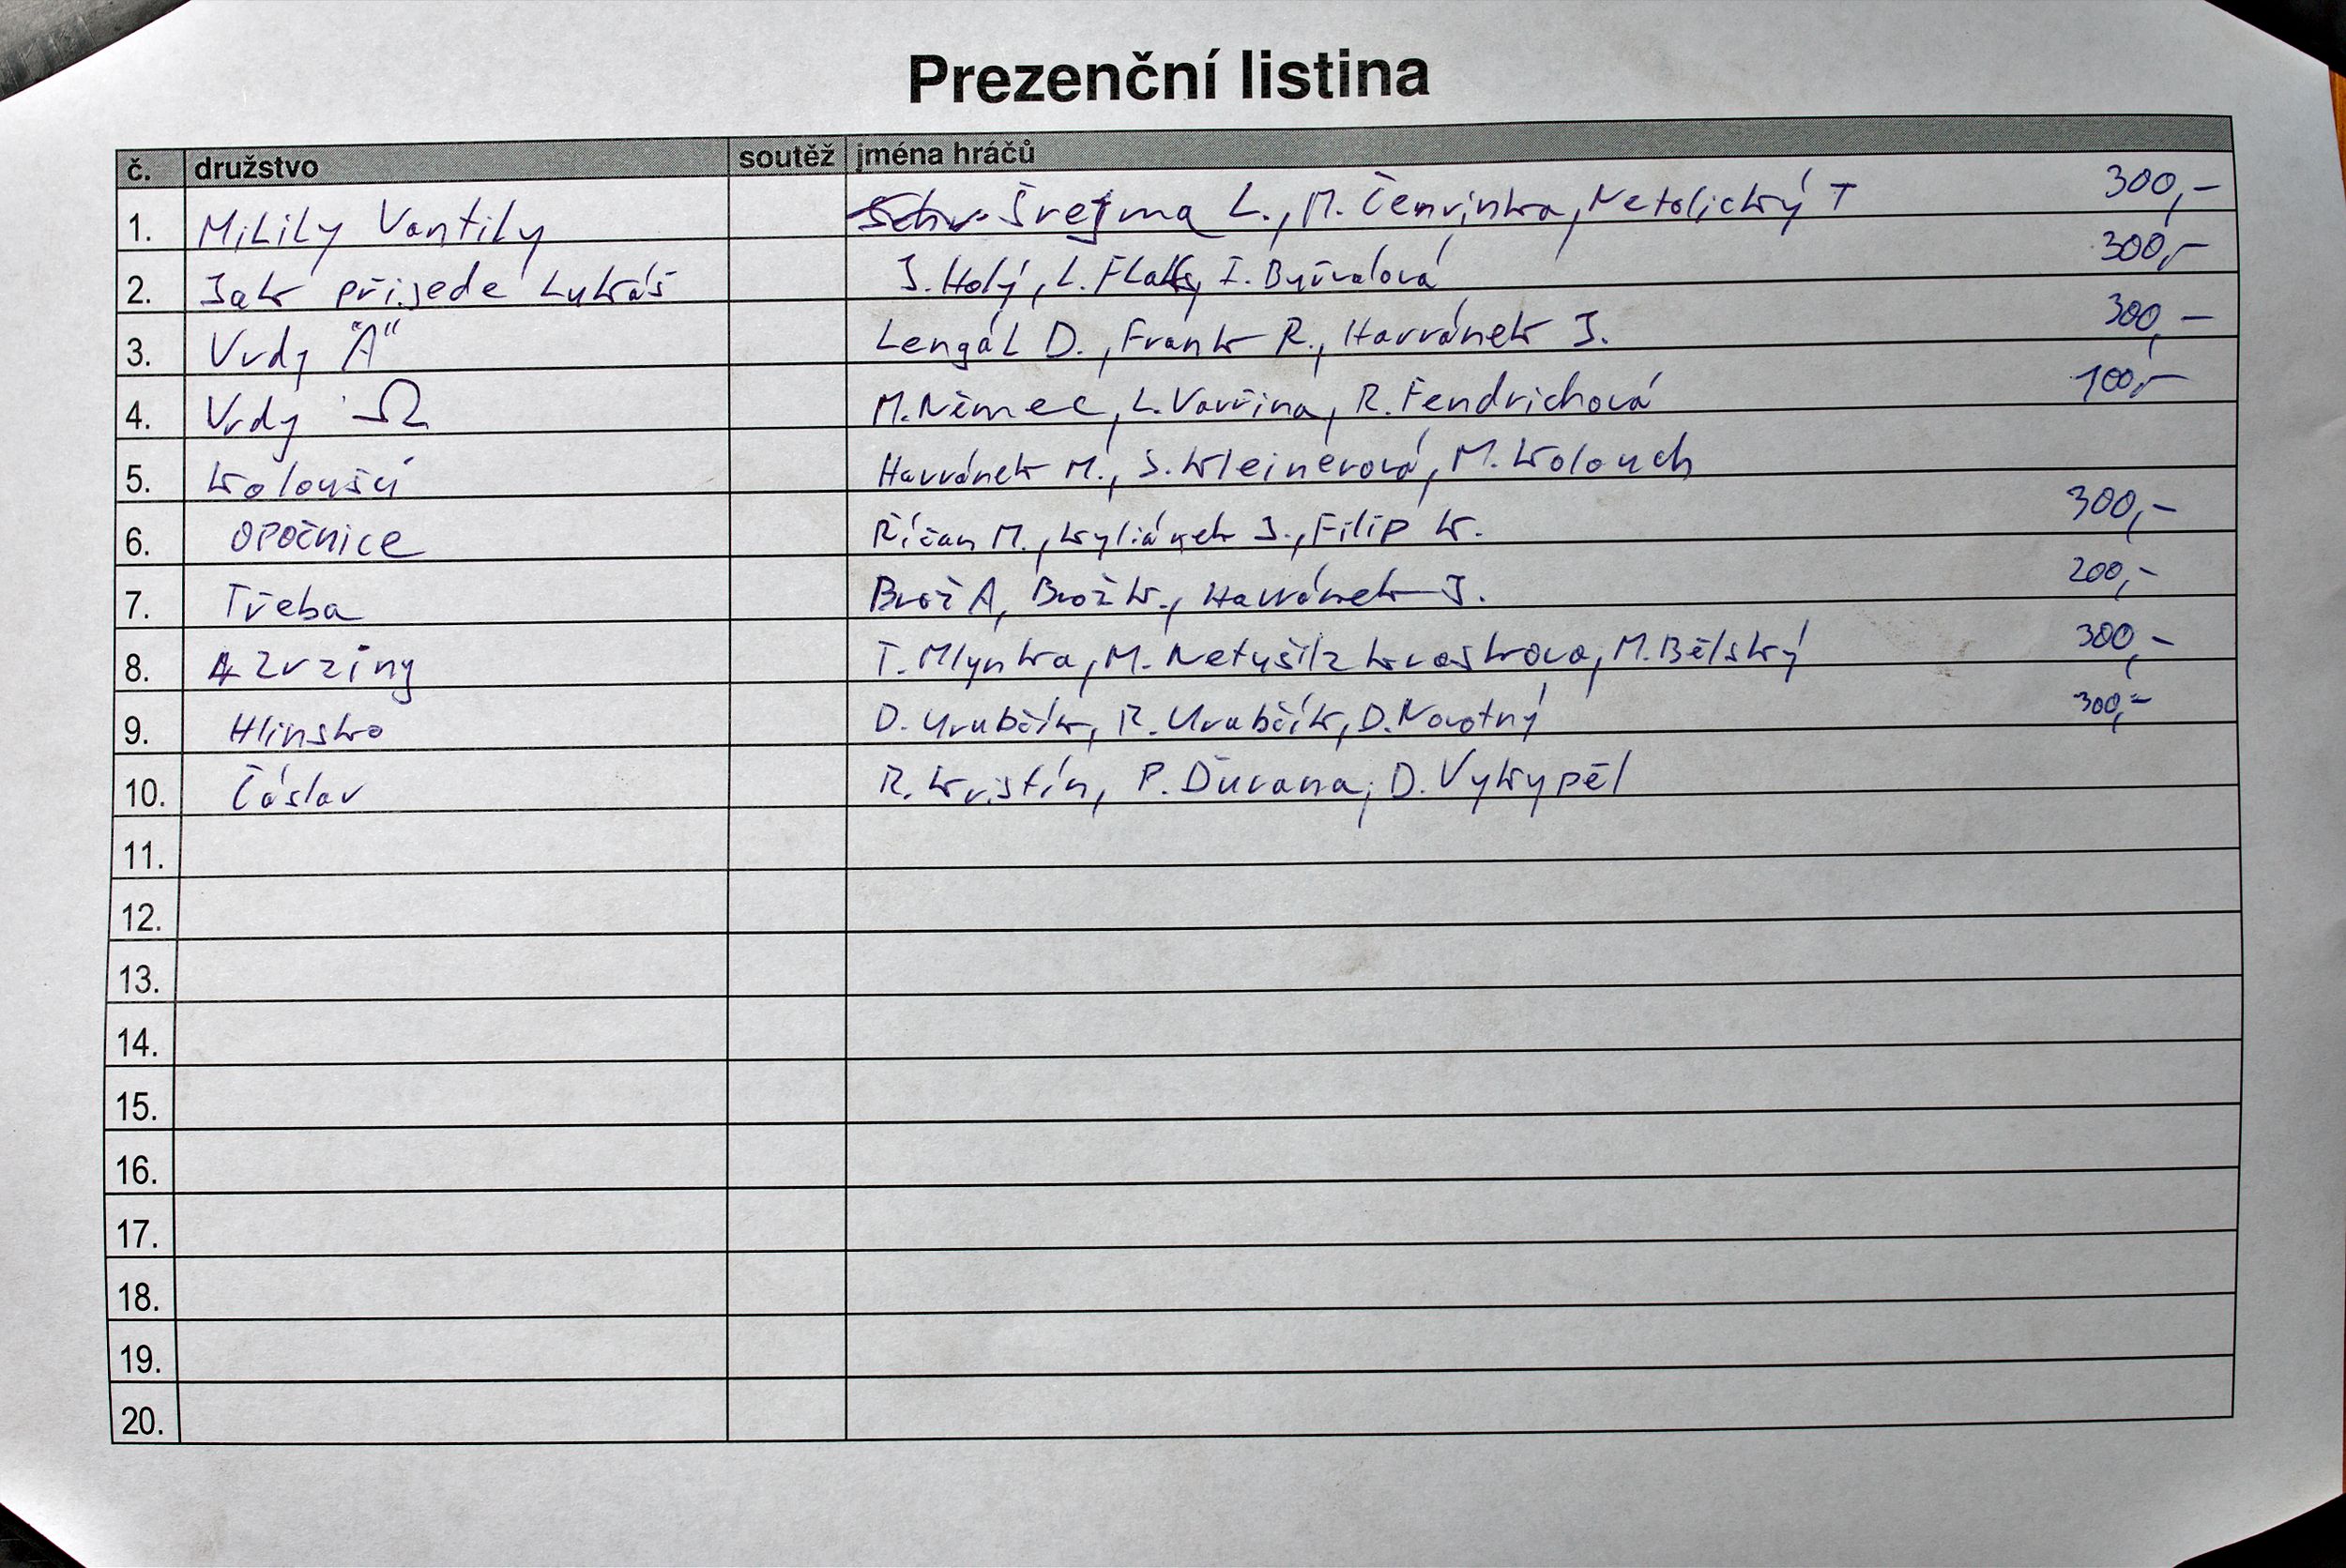 Prezenční listina
č. družstvo soutěž jména hráčů
1. Mikily Vantily Švejma L., M. Červinka, Netolický T 300,-
2. Jak přijede Lukáš J. Holý, L. Flaks, I. Bytvalová 300,-
3. Vrdy "A" Lengál D., Frank R., Havránek J. 300,-
4. Vrdy Ω M. Němec, L. Vavřina, R. Fendrichová 100,-
5. Koloušci Havránek M., S. Kleinerová, M. Kolouch
6. OPOČNICE Říčan M., Kyliánek J., Filip K. 300,-
7. Třeba Brož A, Brož K., Havránek J. 200,-
8. 4 Zvrziny T. Mlynka, M. Netušil M. Bělský 300,-
9. Hlinsko D. Hrubčík, R. Hrubčík, D. Novotný 300,-
10. Čáslav R. Kristín, P. Ďurana, D. Vykypěl
11.
12.
13.
14.
15.
16.
17.
18.
19.
20.